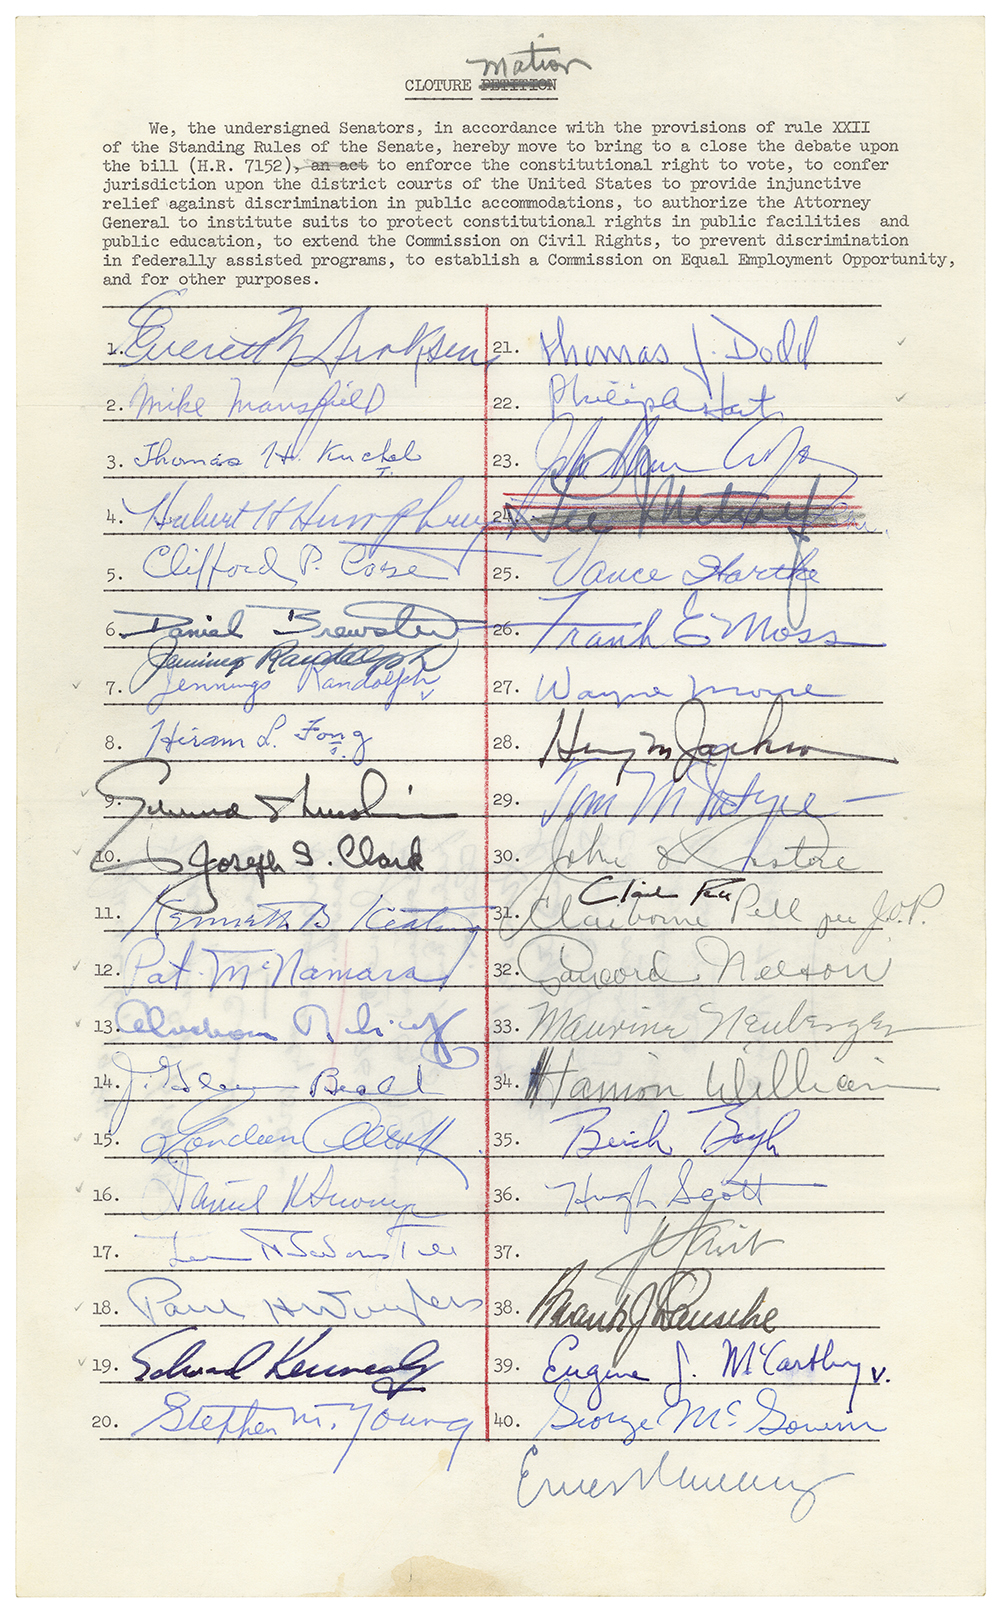 Motion
CLOTURE PETITION
We, the undersigned Senators, in accordance with the provisions of rule XXII
of the Standing Rules of the Senate, hereby move to bring to a close the debate upon
the bill (H.R. 7152), an act to enforce the constitutional right to vote, to confer
jurisdiction upon the district courts of the United States to provide injunctive
relief against discrimination in public accommodations, to authorize the Attorney
General to institute suits to protect constitutional rights in public facilities and
public education, to extend the Commission on Civil Rights, to prevent discrimination
in federally assisted programs, to establish a Commission on Equal Employment Opportunity,
and for other purposes.
1. Everett M Dirksen
2. Mike Mansfield
3. Thomas H. Kuchel
4. Hubert H Humphrey
5. Clifford P. Case
6. Daniel Brewster
Jennings Randolph
7. Jennings Randolph
8. Hiram L. Fong
9.
10. Joseph S. Clark
11. Kenneth B Keating
12. Pat McNamara
13.
14. J. Glenn Beall
15.
16. Daniel K Inouye
17.
18. Paul H Douglas
19. Edward Kennedy
20. Stephen M. Young
21. Thomas J. Dodd
22. Philip A Hart
23. John Sherman
24. Lee Metcalf
25. Vance Hartke
26. Frank E Moss
27. Wayne Morse
28. Henry M Jackson
29. Tom McIntyre
30. John
31. Claiborne Pell per J.O.P.
32. Gaylord Nelson
33. Maurine Neuberger
34. Harrison Williams
35. Birch Bayh
36. Hugh Scott
37.
38. Frank J Lausche
39. Eugene J. McCarthy
40. George McGovern
Ernest Gruening